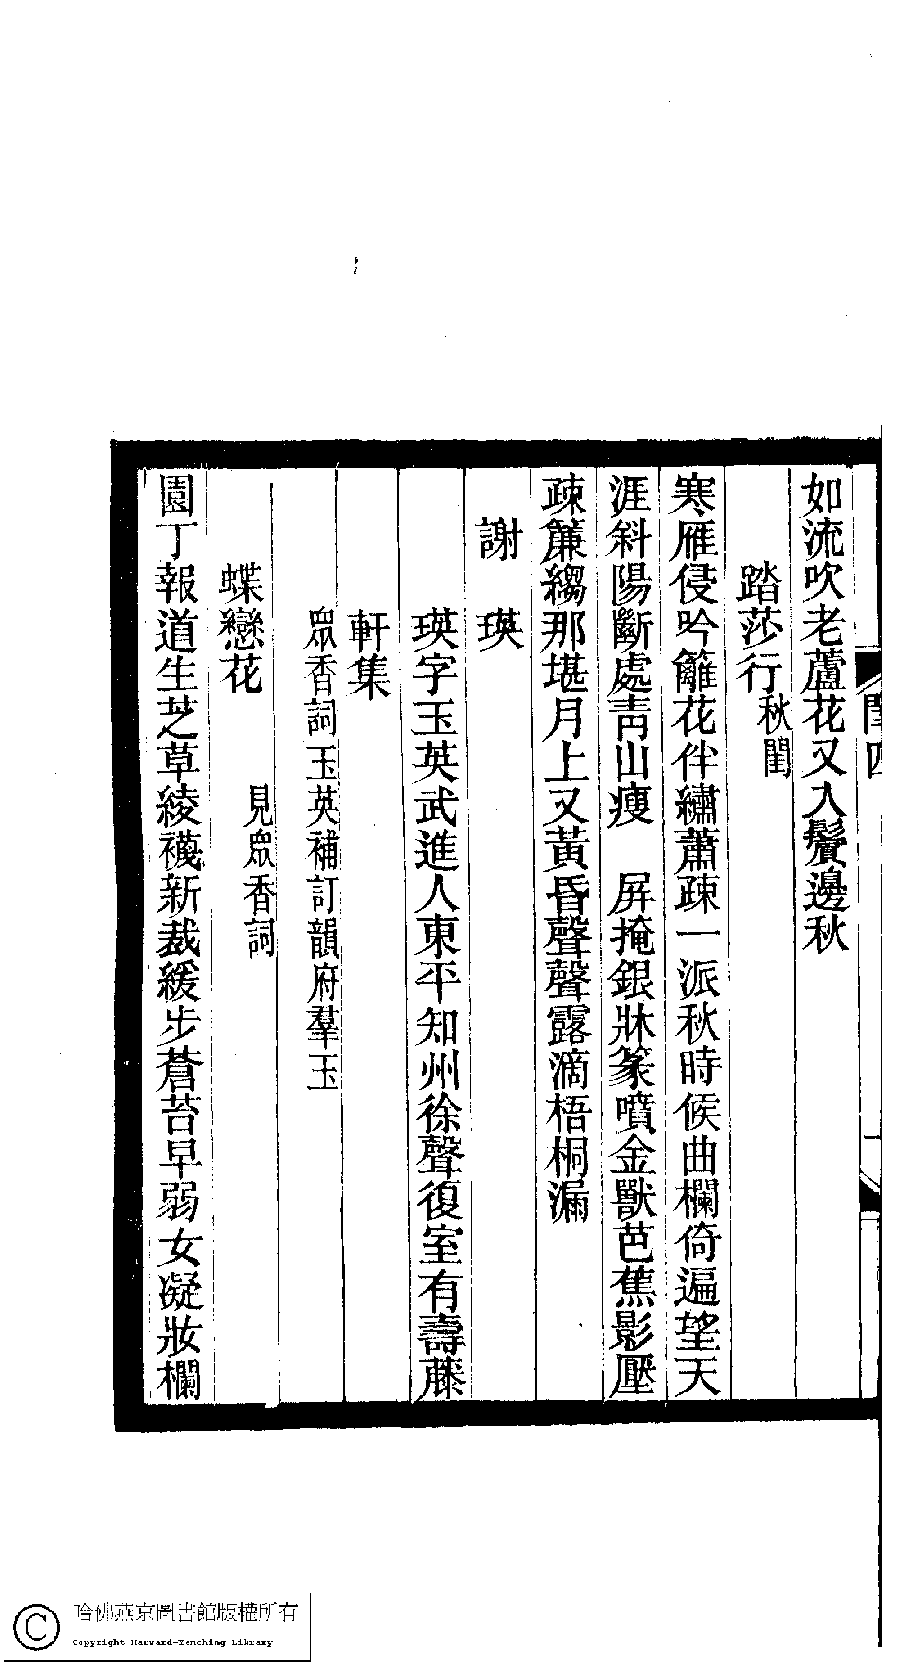 閨四
如流吹老蘆花又入鬢邊秋
踏莎行秋閨
寒雁侵吟籬花伴繡蕭疎一派秋時候曲欄倚遍望天
涯斜陽斷處靑山瘦　屏掩銀牀篆噴金獸芭蕉影壓
疎簾縐那堪月上又黃昏聲聲露滴梧桐漏
謝　瑛
瑛字玉英武進人東平知州徐聲復室有壽藤
軒集
眾香詞玉英補訂韻府羣玉
蝶戀花　見眾香詞
園丁報道生芝草綾襪新裁緩步蒼苔早弱女凝妝欄
哈佛燕京圖書館版權所有
Copyright Harvard-Yenching Library